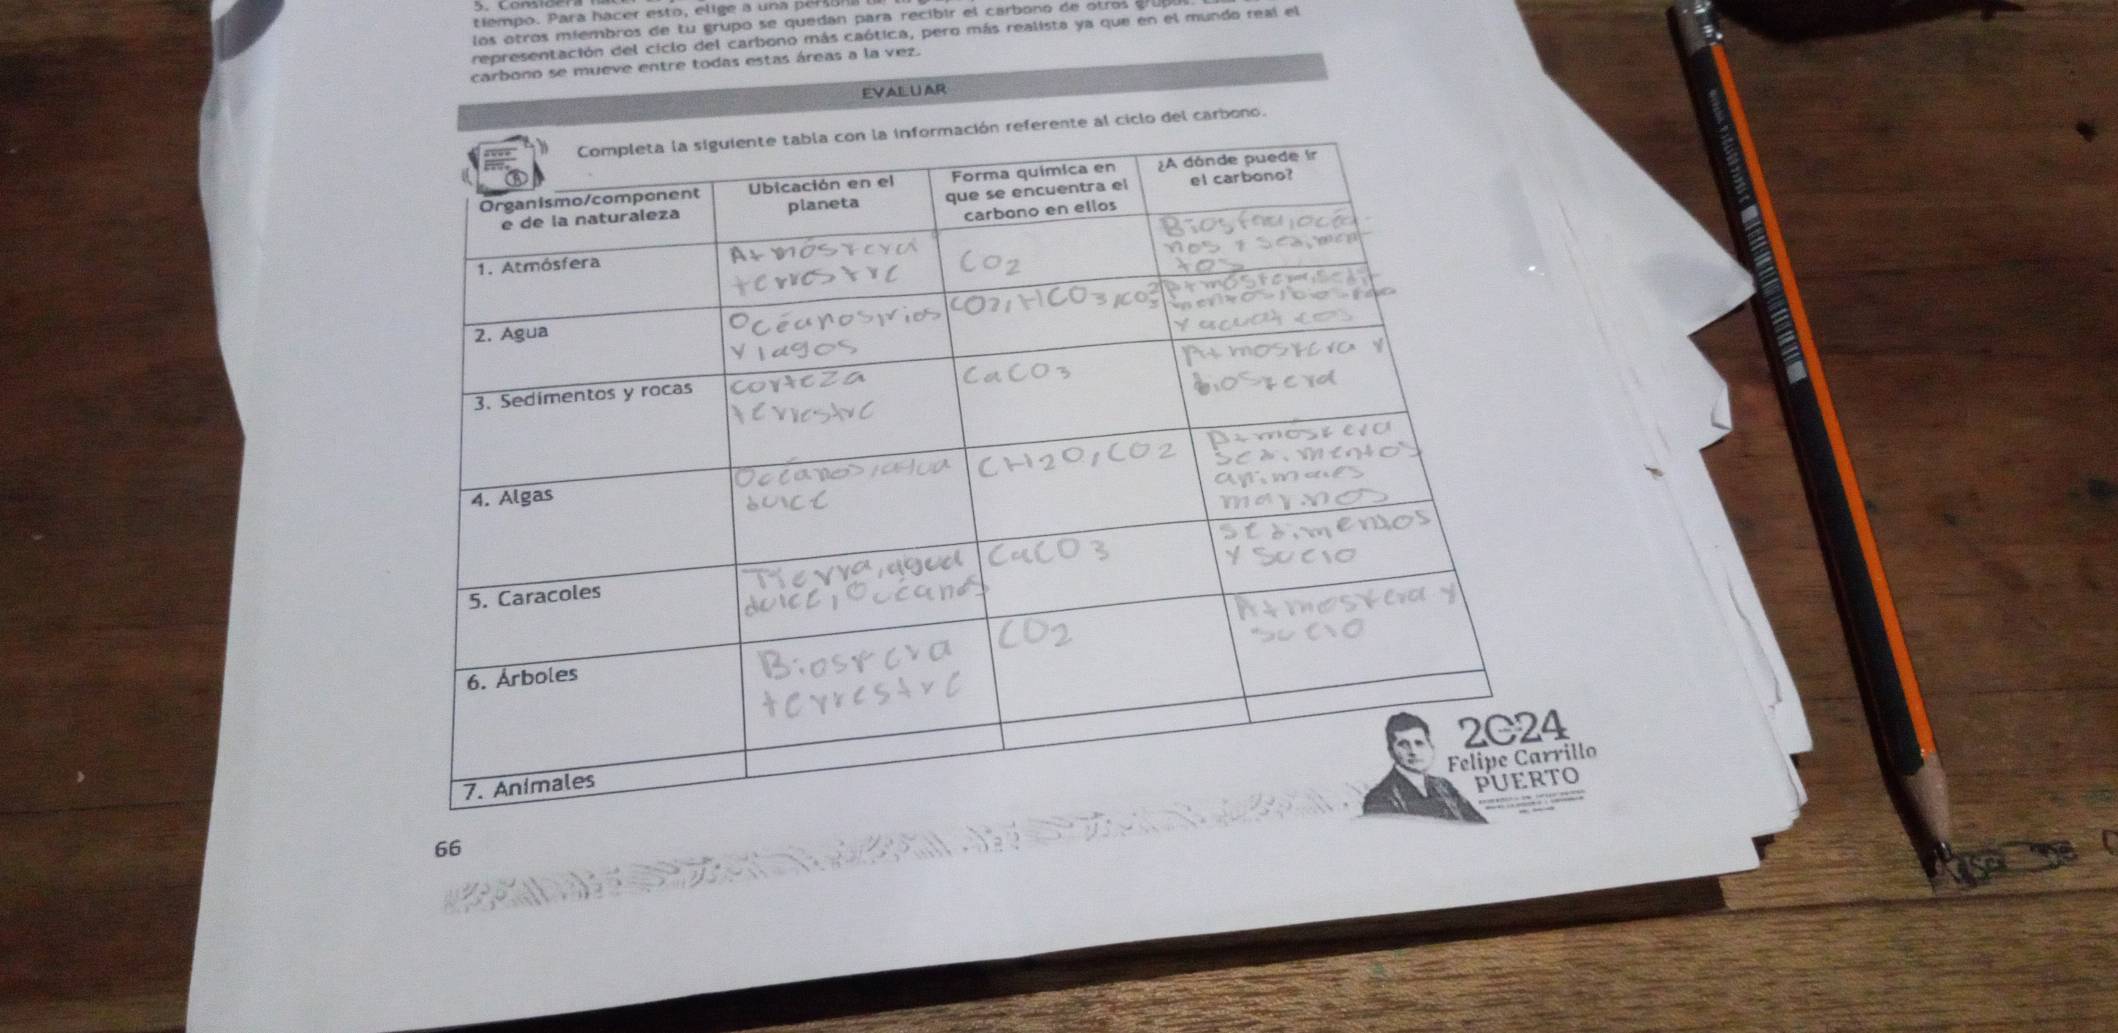 5. Considera
tiempo. Para hacer esto, elige a una persona
los otros miembros de tu grupo se quedan para recibir el carbono de otros
representación del ciclo del carbono más caótica, pero más realista ya que en el mundo real el
carbono se mueve entre todas estas áreas a la vez.
EVALUAR
Completa la siguiente tabla con la información referente al ciclo del carbono.
Organismo/component
e de la naturaleza
Ubicación en el
planeta
Forma química en
que se encuentra el
carbono en ellos
¿A dónde puede ir
el carbono?
1. Atmósfera
Atmósfera
terrestre
CO2
Biosfera, océa
nos y sedimen
tos
2. Agua
Océanos, rios
y lagos
CO2, HCO3, CO3 2
Atmósfera, sedi
mentos, biosfera
y acuaticos
3. Sedimentos y rocas
corteza
terrestre
CaCO3
Atmosfera y
biosfera
4. Algas
Océanos, agua
dulce
CH2O, CO2
Atmósfera
sedimentos
animales
marinos
5. Caracoles
Tierra, agua
dulce, Océanos
CaCO3
sedimentos
y suelo
6. Árboles
Biosfera
terrestre
CO2
Atmosfera y
suelo
7. Animales
2024
Felipe Carrillo
PUERTO
66